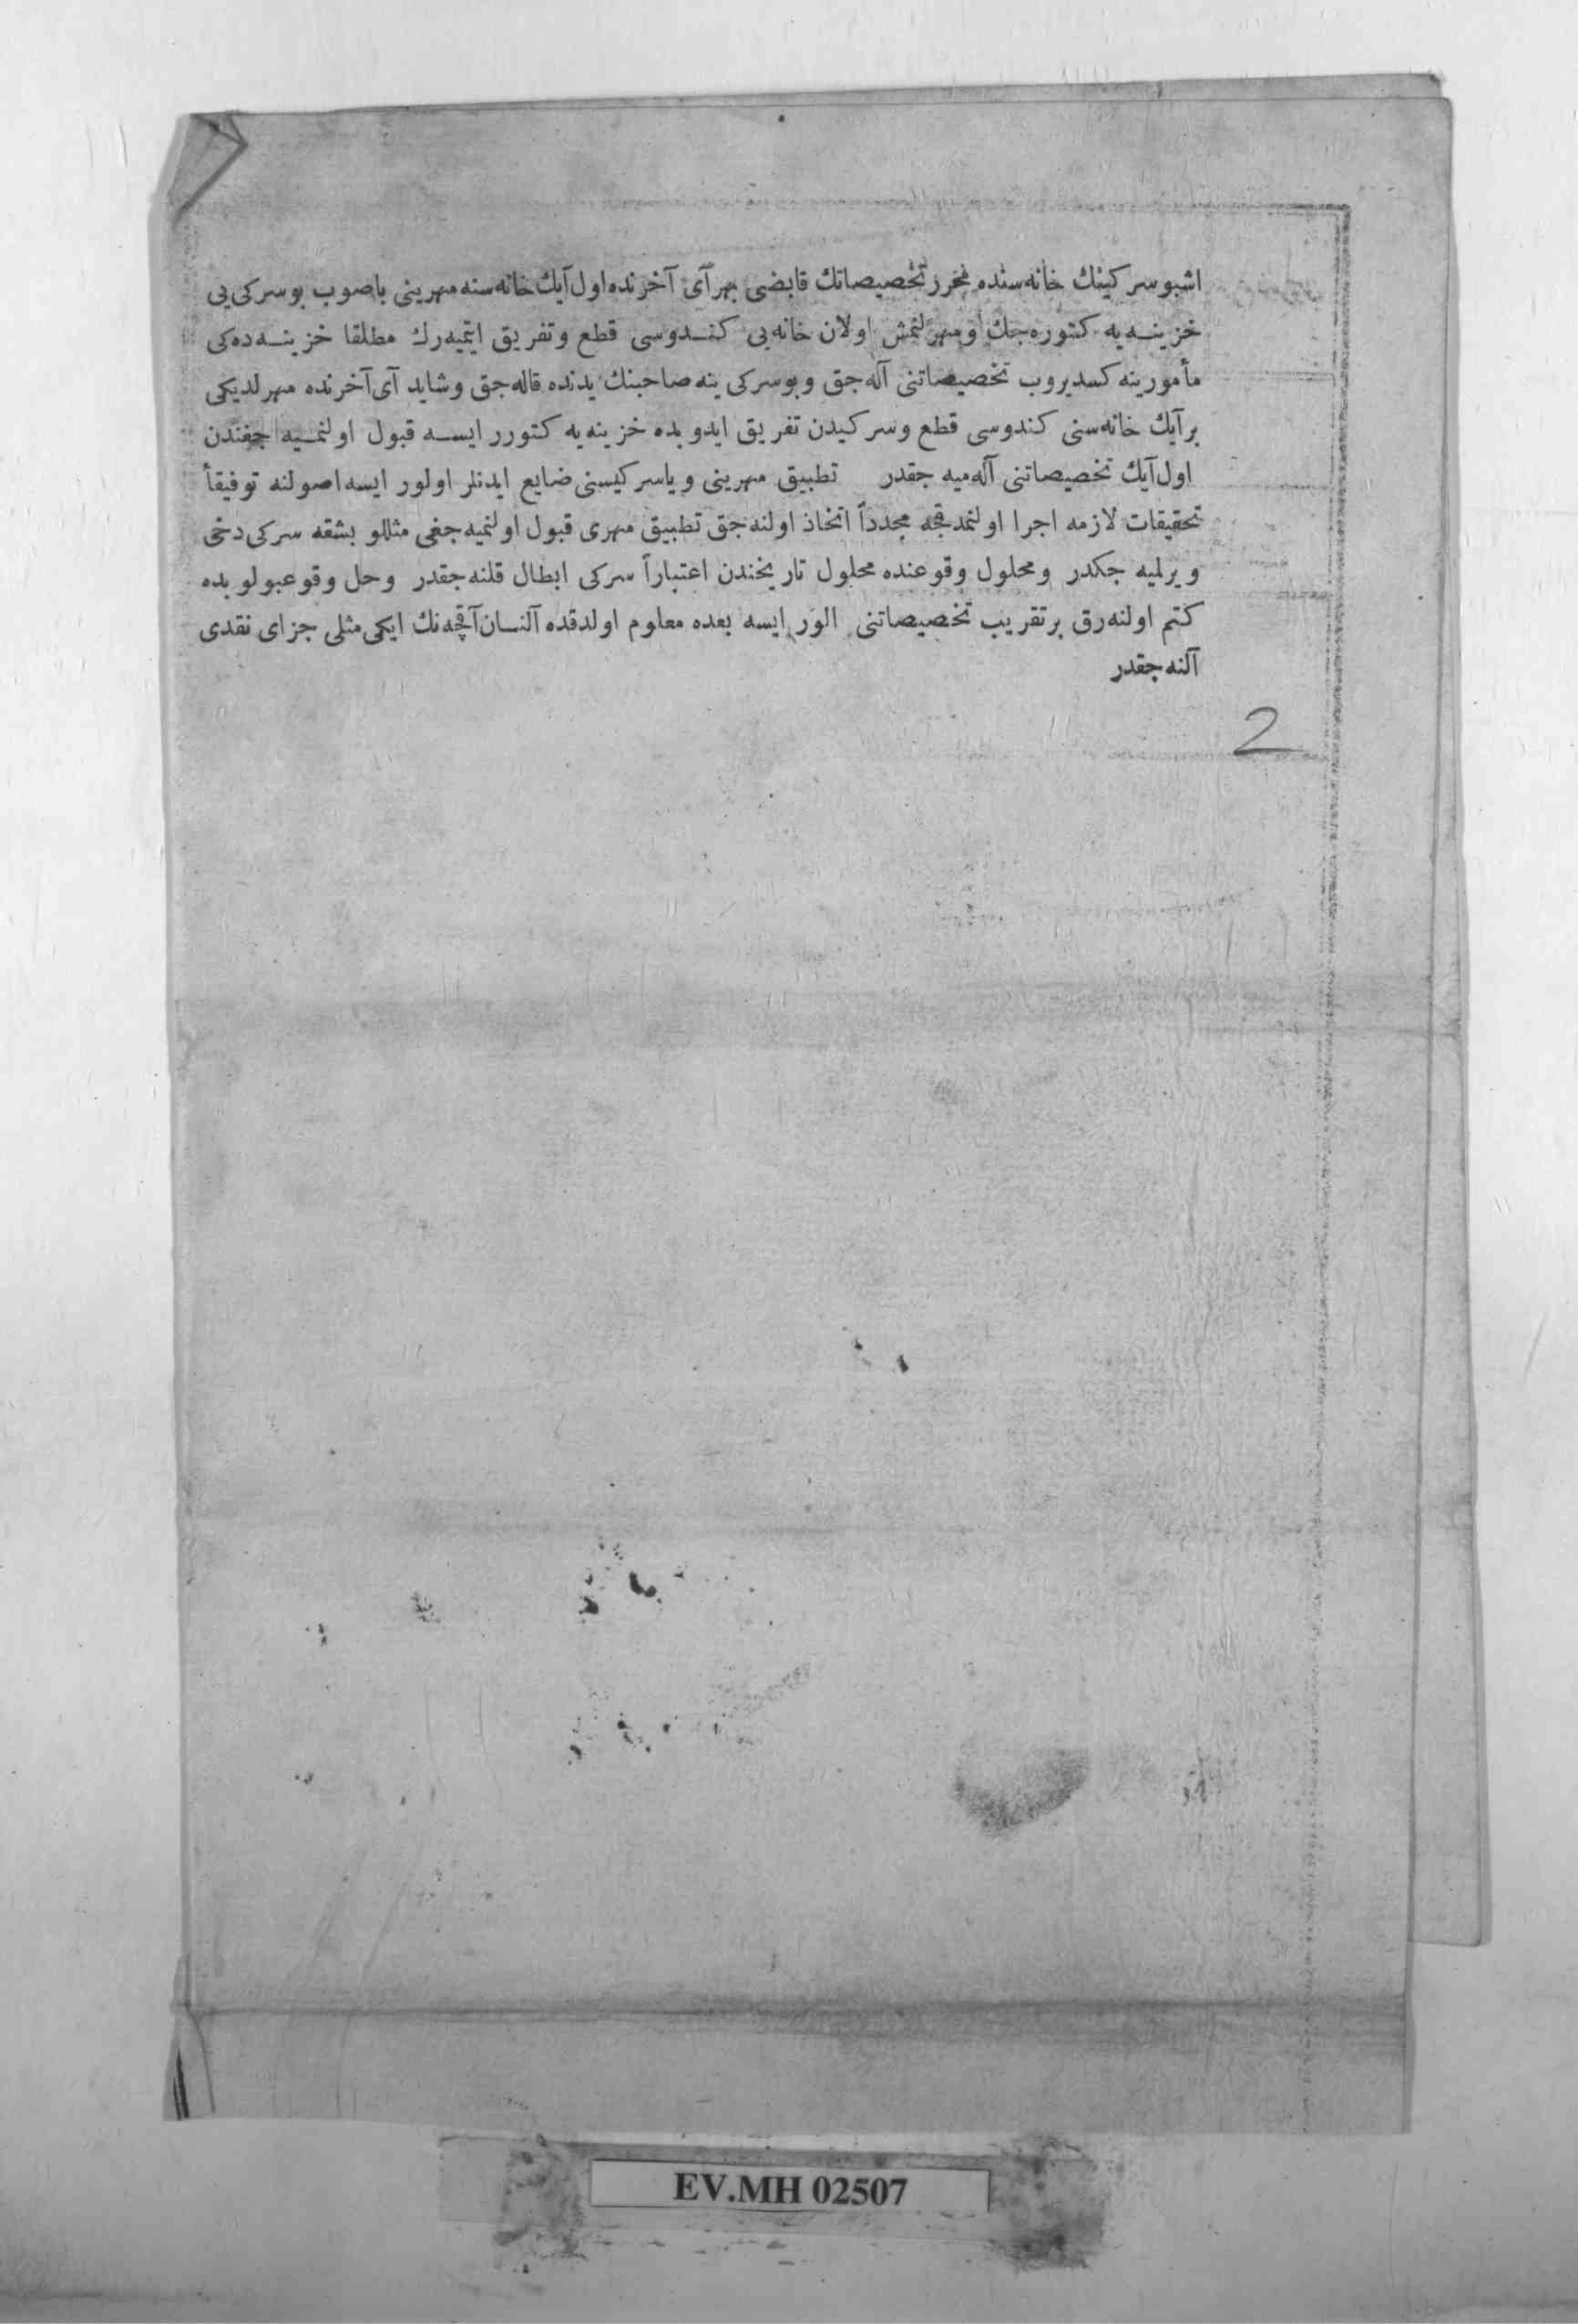 اشبو سركينك خانه‌سنده محرر تخصيصاتك قابضى بهر آى آخرنده اول آيك خانه‌سنه مهرينى باصوب بو سركى يى
خزينــه‌يه كتوره‌جك ومهرلنمش اولان خانه‌يى كنــدوسى قطع وتفريق ايتميه‌رك مطلقا خزينــه‌ده‌كى
مأمورينه كسديروب تخصيصاتنى آله‌جق وبو سركى ينه صاحبنك يدنده قاله‌جق وشايد آى آخرنده مهرلديكى
بر آيك خانه‌سنى كندوسى قطع وسركيدن تفريق ايدوبده خزينه‌يه كتورر ايســه قبول اولنمــيه جغندن
اول آيك تخصيصاتنى آله‌ميه جقدر تطبيق مهرينى وياسركيسنى ضايع ايدنلر اولور ايسه اصولنه توفيقاً
تحقيقات لازمه اجرا اولنمدقجه مجدداً اتخاذ اولنه‌جق تطبيق مهرى قبول اولنميه‌جغى مثللو بشقه سركى دخى
ويرلميه جكدر ومحلول وقوعنده محلول تاريخندن اعتباراً سركى ابطال قلنه‌جقدر وحل وقوعبولوبده
كتم اولنه‌رق بر تقريب تخصيصاتنى الور ايسه بعده معلوم اولدقده آلنــان آقچه‌نك ايكى مثلى جزاى نقدى
آلنه‌جقدر
2
EV.MH 02507